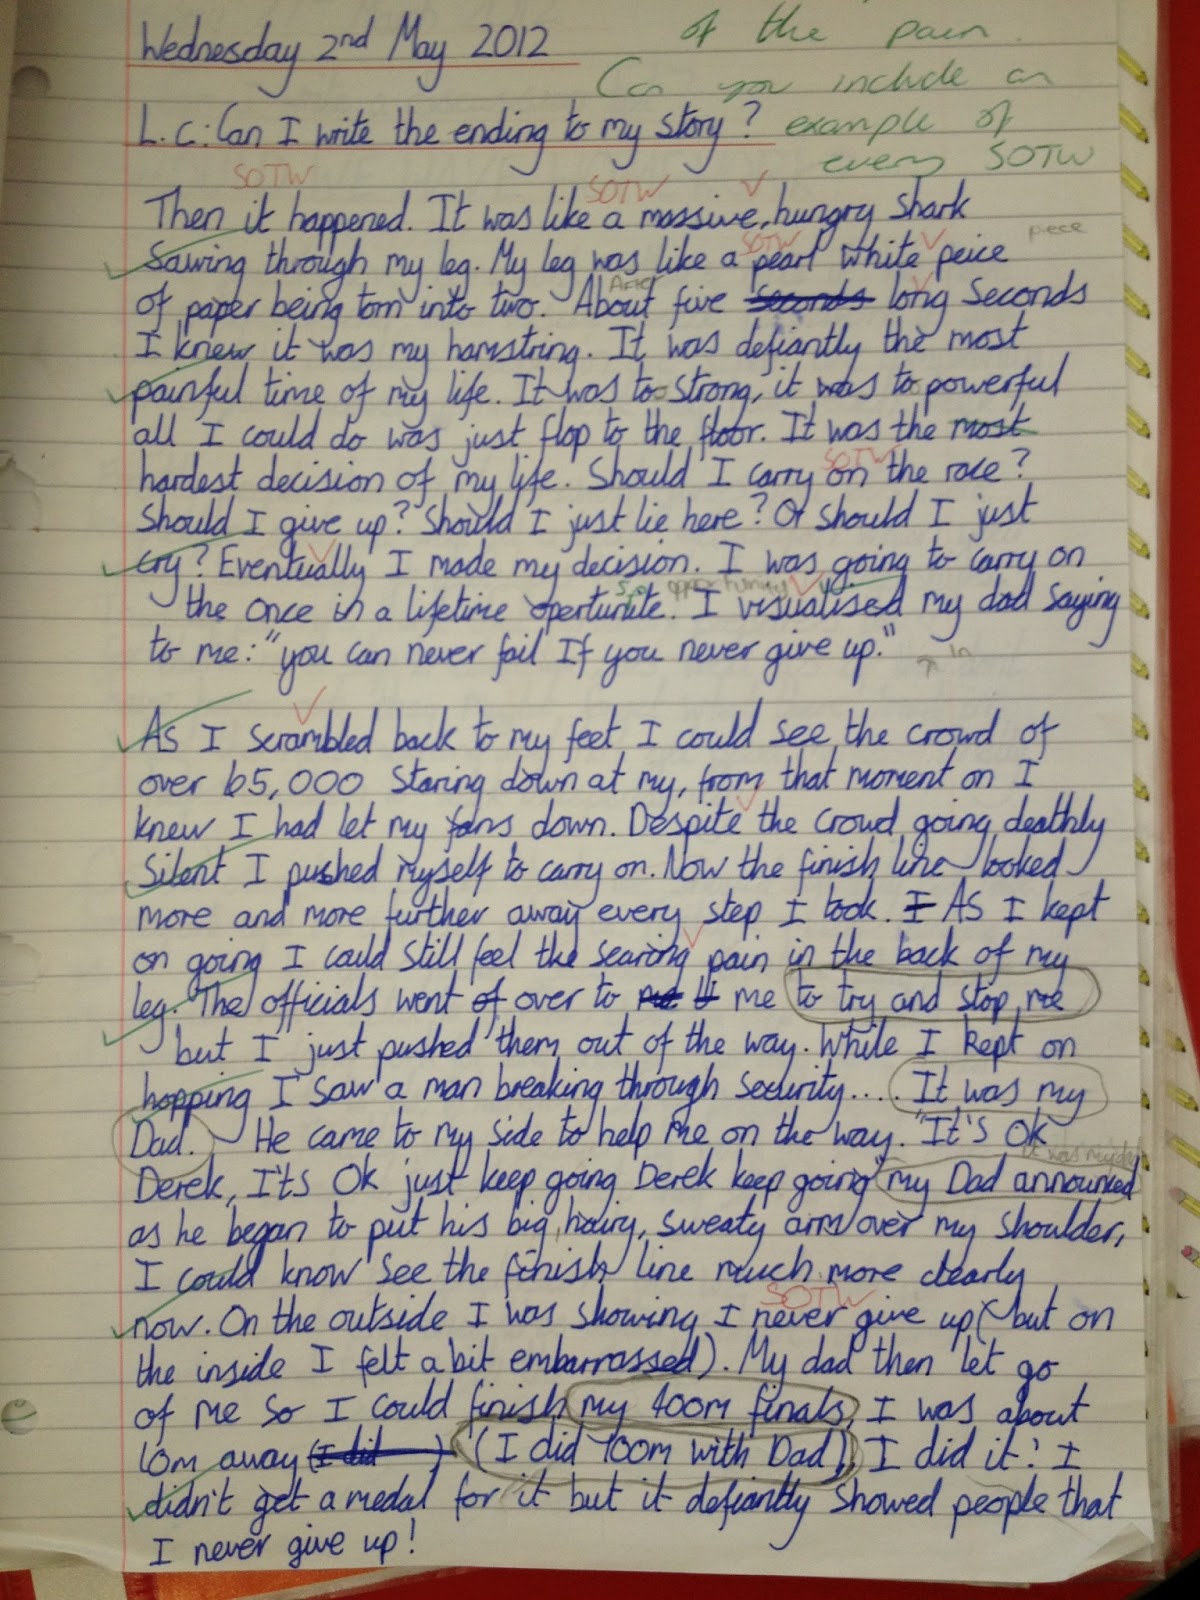 of the pain.
Wednesday 2nd May 2012
Can you include an
L.C: Can I write the ending to my story? example of
every SOTW
SOTW SOTW
Then it happened. It was like a massive, hungry shark
SOTW piece
Sawing through my leg. My leg was like a pearl white peice
After
of paper being torn into two. About five seconds long seconds
I knew it was my hamstring. It was defiantly the most
painful time of my life. It was too strong, it was to powerful
all I could do was just flop to the floor. It was the most
SOTW
hardest decision of my life. Should I carry on the race?
Should I give up? Should I just lie here? Or should I just
cry? Eventually I made my decision. I was going to carry on
opportunity
the once in a lifetime opertunite. I visualised my dad saying
to me: "you can never fail If you never give up."
in
As I scrambled back to my feet I could see the crowd of
over 65,000 staring down at my, from that moment on I
knew I had let my fans down. Despite the crowd going deathly
Silent I pushed myself to carry on. Now the finish line looked
more and more further away every step I took. I As I kept
on going I could still feel the searing pain in the back of my
leg. The officials went of over to me me to try and stop me
but I just pushed them out of the way. While I kept on
hopping I saw a man breaking through security.... It was my
Dad. He came to my side to help me on the way. "It's Ok
it was my dad
Derek, It's Ok just keep going Derek keep going" my Dad announced
as he began to put his big, hairy, sweaty arm over my shoulder,
I could know see the finish line much more clearly
SOTW
now. On the outside I was showing I never give up (but on
the inside I felt a bit embarrassed). My dad then let go
of me so I could finish my 400m finals, I was about
10m away (I did ) (I did 100m with Dad), I did it! I
didn't get a medal for it but it defiantly showed people that
I never give up!